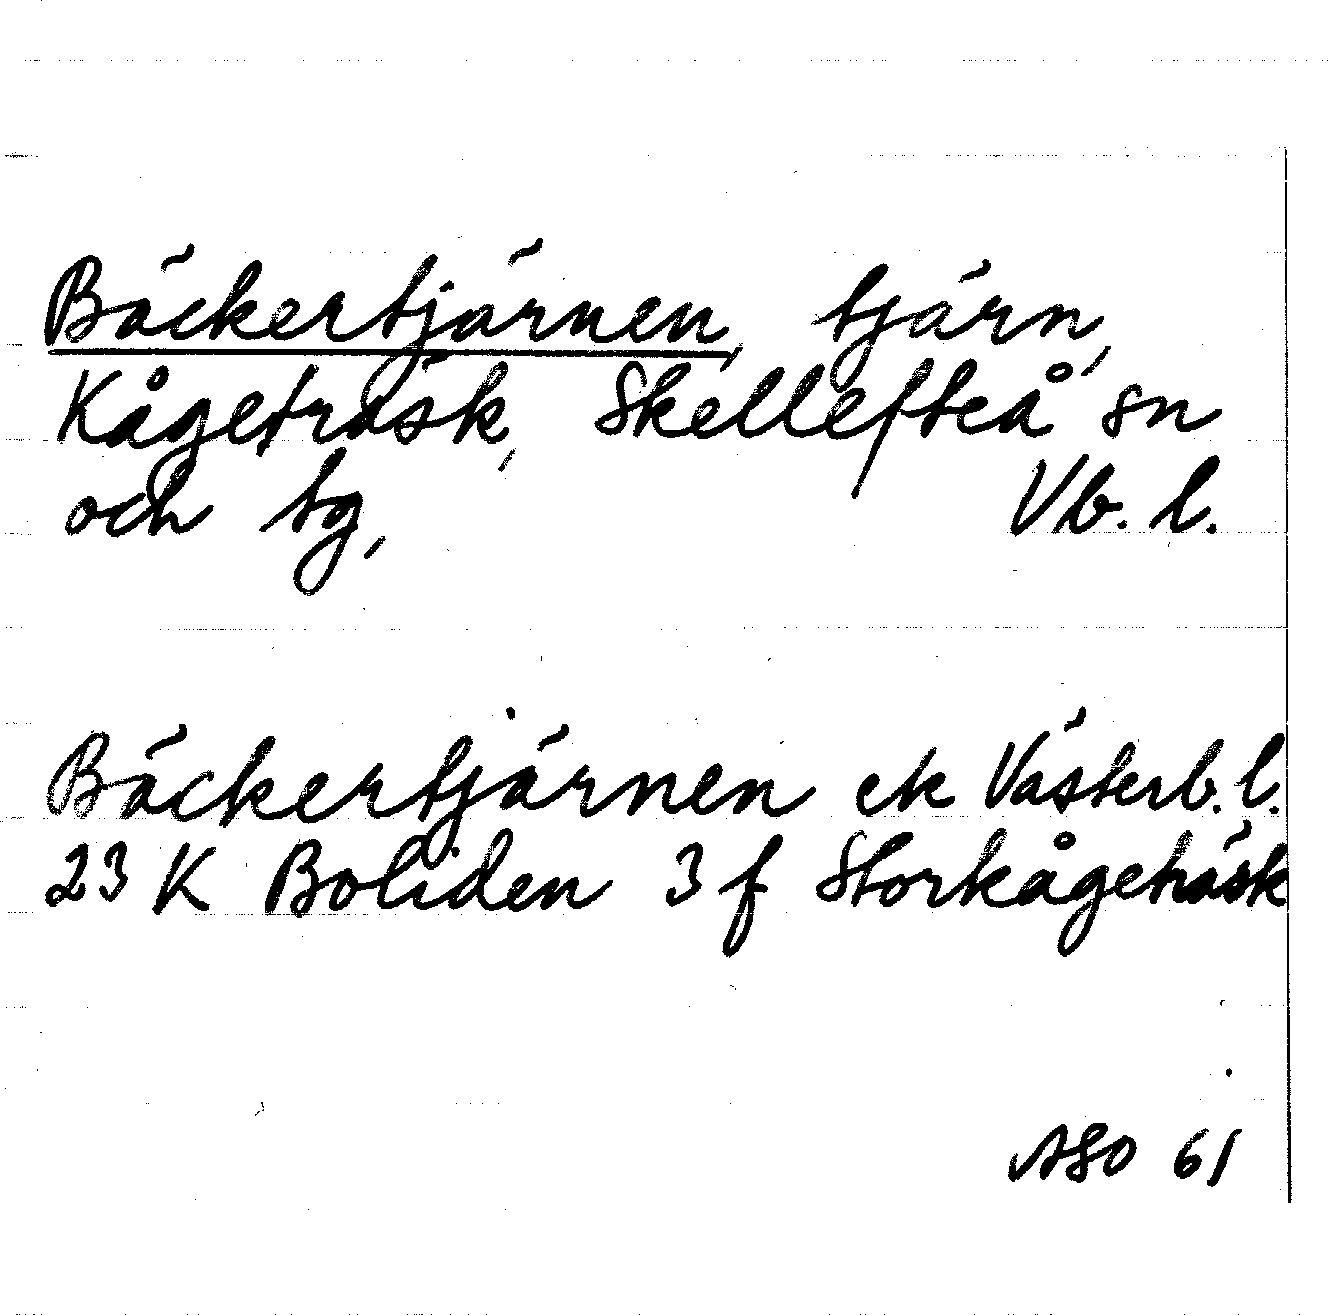 Bäckertjärnen, tjärn,
Kågeträsk, Skellefteå sn
och tg, Vb. l.
Bäckertjärnen ek Västerb. l.
23 K Boliden 3 f Storkågeträsk
ASO 61